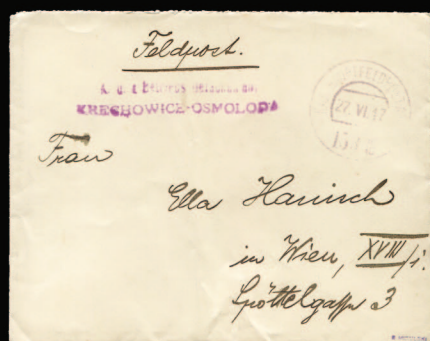 Feldpost.
KRECHOWICE-OSMOLODA
27. VI. 17
Frau
Ella Hanisch
in Wien, XVIII/1.
Spöttelgasse 3